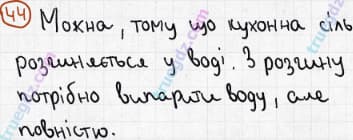 44 Можна, тому що кухонна сіль
розчиняється у воді. З розчину
потрібно випарити воду, але
повністю.
truegdz.com